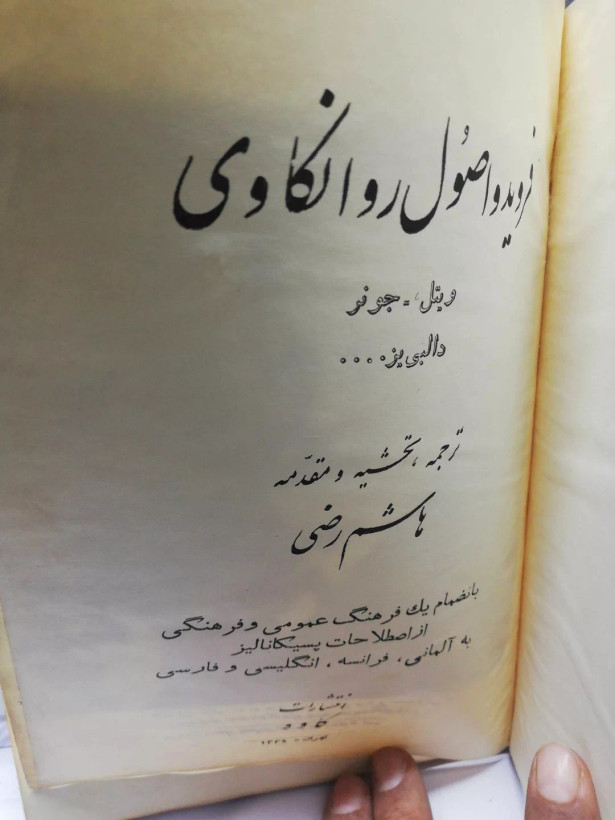 فرویدواصُول روانکاوی
ویتل، - جونز
دالبی یز....
ترجمه، تحشیه و مقدّمه
هاشم رضی
بانضمام یك فرهنگ عمومی وفرهنگی
ازاصطلاحات پسیکانالیز
به آلمانی، فرانسه، انگلیسی و فارسی
انتشارات
کاوه
تهران -